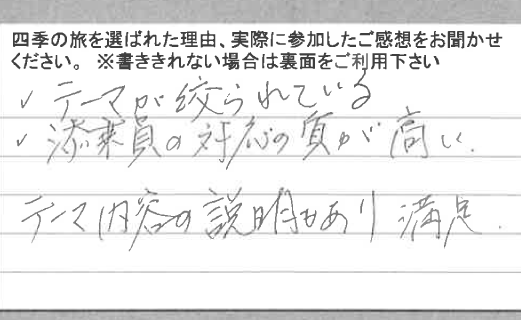 四季の旅を選ばれた理由、実際に参加したご感想をお聞かせ
ください。 ※書ききれない場合は裏面をご利用下さい
✓ テーマが絞られている
✓ 添乗員の対応の質が高い.
テーマ内容の説明もあり 満足.